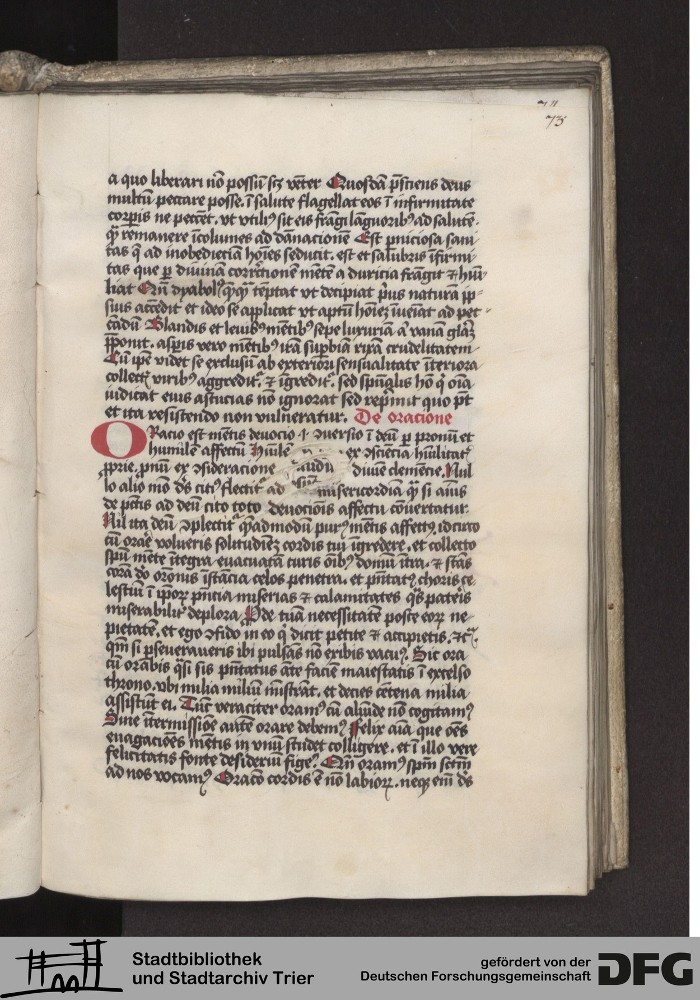 73
a quo liberari nō possū scꝫ vēter Quosdā p̄sciens deus
multū peccare posse. ī salute flagellat eos ī infirmitate
corp̄is ne peccēt. vt vtiliꝰ sit eis frāgi lāguoribꝰ ad salutē.
qͣ̄ remanere īcolumes ad dānacionē Est p̄niciosa sani
tas q̄ ad inobediētiā hoīes seducit. est et salubris īfirmi
tas que ꝑ diuinā correctionē mētē a duricia frāgit ⁊ hūi
liat Cū dyabolꝰ tēptat vt decipiat priꝰ naturā ip
sius accedit et ideo se applicat vt aptū hoīeꝫ īueīat ad pec
cādū Blandis et leuibꝰ mētibꝰ sepe luxuriā aͭ vanā glīaꝫ
p̄ponit. asp̄is vero mētibꝰ irā supbiā rixā crudelitatem
Cū ip̄e videt se exclusū ab exteriori sensualitate īteriora
collectꝭ viribꝰ aggreditͬ ⁊ īgreditͬ. sed spūalis hō qͥ oīa
iudicat eius astucias nō ignorat sed reprimit quo pōt
et ita resistendo non vulneratur. De oracione
ORacio est mētis deuocio .i. ꝯuersio ī deū ꝑ pronuꝫ et
humilē affectū Humilē ex ꝯsciēcia hūilitatꝭ
ꝓprie. pronū ex ꝯsideracione diuīe clemēcie. Nul
lo alio mō dꝰs citiꝰ flectitͬ ad misericordiā qͣ̄ si aīus
de pctīs ad deū cito toto deuocionis affectu cōuertatur.
Nil ita deū ꝯplectitͬ qͣ̄admodū purꝰ mētis affectꝰ. idcirco
cū orare volueris solitudīeꝫ cordis tui īgredere. et collecto
spū mēte ītegra euacuata curis oībꝰ domū ītra. ⁊ stās
corā dō oronis īstācia celos penetra. et p̄ntatꝰ choris ce
lestiū ī ip̄oꝝ pn̄cia miserias ⁊ calamitates qͣs pateris
miserabilitͬ deplora Pde tuā necessitatē poste eorꝝ ne
pietatē. et ego ꝯfido in eo qͥ dicit petite ⁊ accipietis. ⁊cͣ.
qm̄ si ꝑseueraueris ibi pulsās nō eribis vacuꝰ. Sic ora
cū orabis qͣsi sis p̄ntatus aͤte faciē maiestatis ī excelso
throno. vbi milia miliū mīstrāt. et decies cētena milia
assistūt ei. Tūc veraciter oramꝰ cū aliūde nō cogitamꝰ
Sine ītermissiōe autē orare debemꝰ Felix aīa que oēs
euagacioēs mētis in vnū studet colligere. et ī illo vere
felicitatis fonte desideriū fige Cū oramꝰ spm̄ sctm̄
ad nos vocamꝰ Oracō cordis ē nō labioꝝ. neqꝫ em̄ dꝰs
Stadtbibliothek
und Stadtarchiv Trier
gefördert von der
Deutschen Forschungsgemeinschaft
DFG